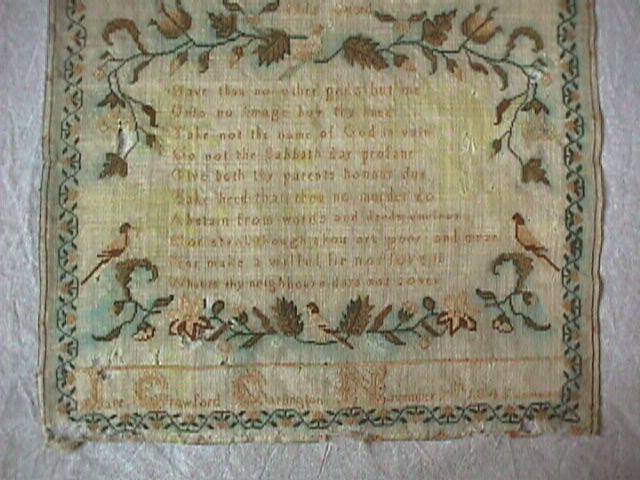 Have thou no other gods but me
Unto no image bow thy knee
Take not the name of God in vain
Do not the Sabbath day profane
Give both thy parents honour due
Take heed that thou no murder do
Abstain from words and deeds unclean
Nor steal though thou art poor and mean
Nor make a willful lie nor love it
What is thy neighbours dare not covet
Jane Crawford November